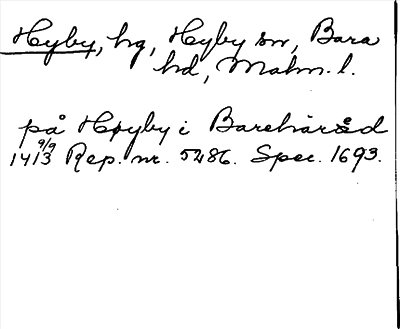 Hyby, hg, Hyby sn, Bara
hd, Malm. l.
på Høyby i Barehäråd
9/9
1413 Rep. nr. 5286. Spec. 1693.